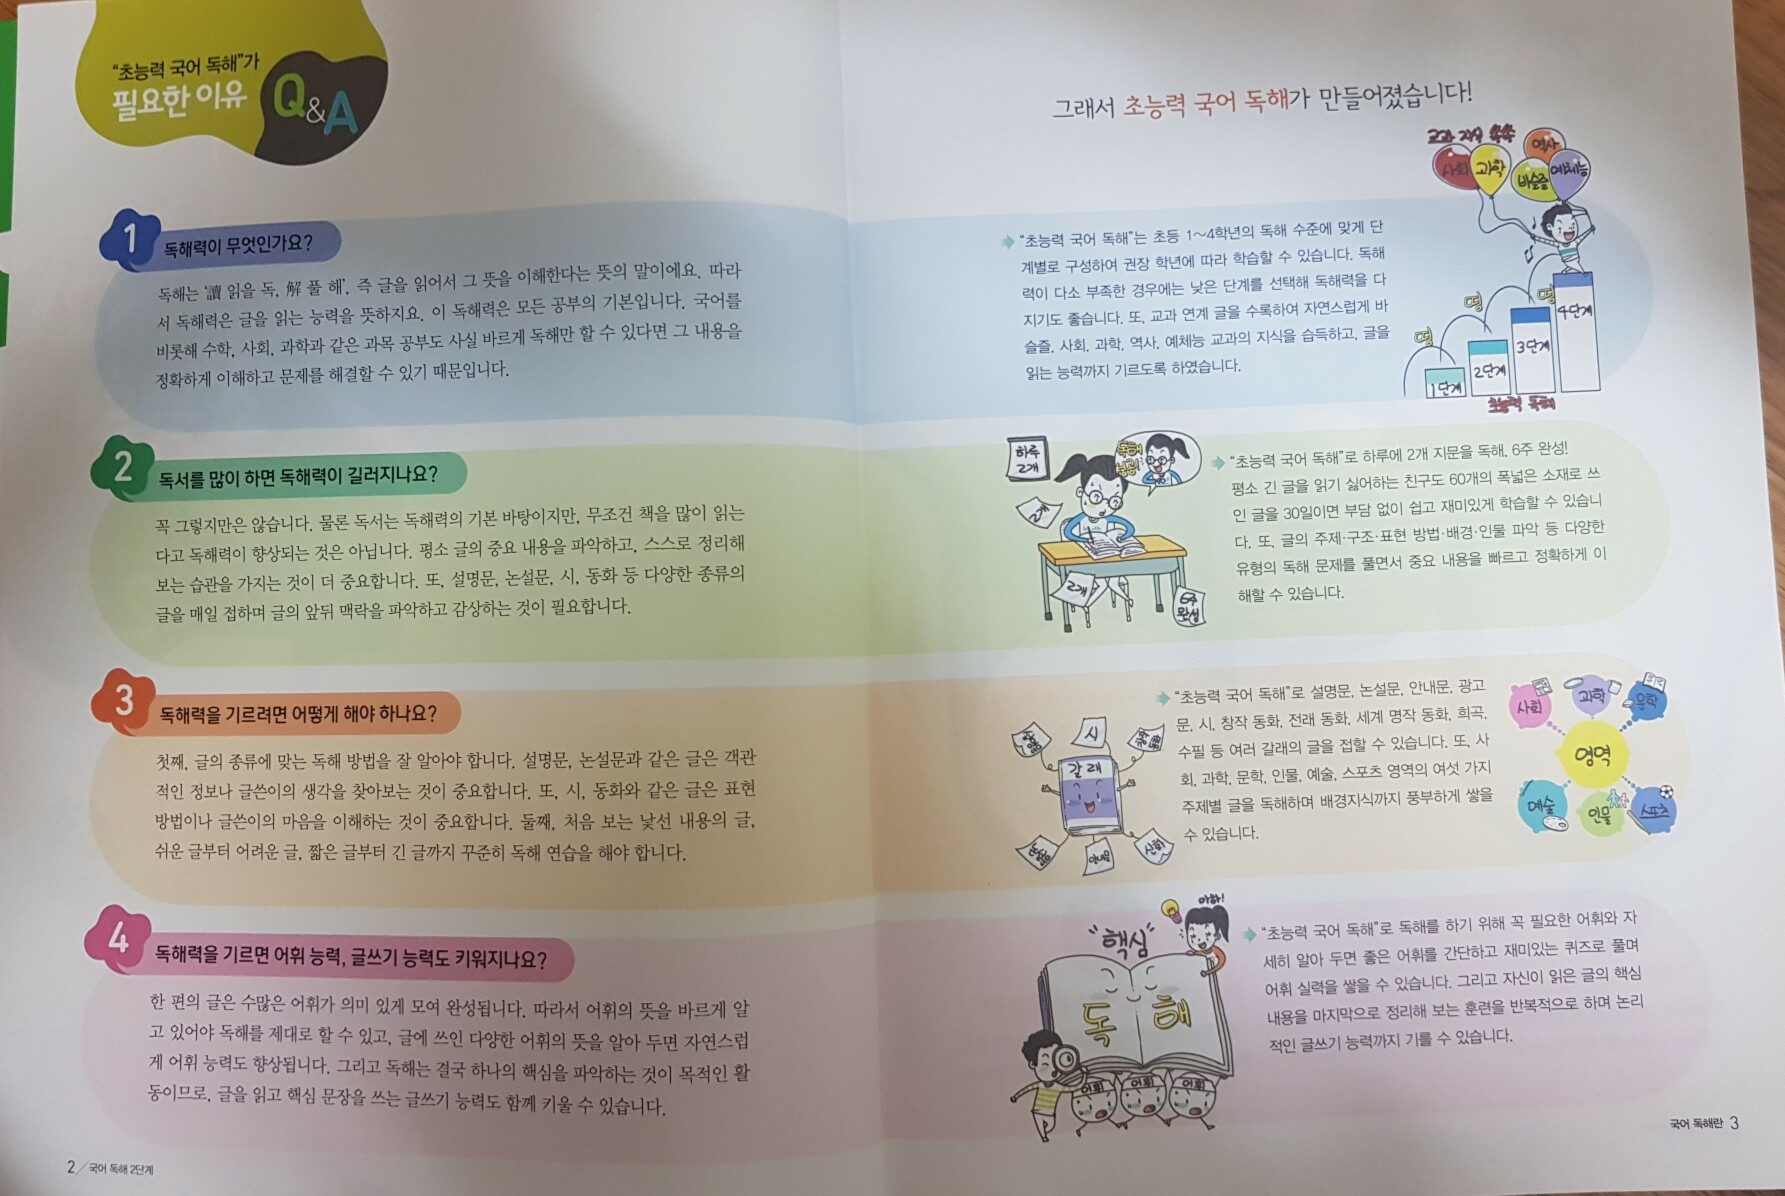 “초능력 국어 독해”가
필요한 이유
Q&A
1 독해력이 무엇인가요?
독해는 ‘讀 읽을 독, 解 풀 해’, 즉 글을 읽어서 그 뜻을 이해한다는 뜻의 말이에요. 따라
서 독해력은 글을 읽는 능력을 뜻하지요. 이 독해력은 모든 공부의 기본입니다. 국어를
비롯해 수학, 사회, 과학과 같은 과목 공부도 사실 바르게 독해만 할 수 있다면 그 내용을
정확하게 이해하고 문제를 해결할 수 있기 때문입니다.
2 독서를 많이 하면 독해력이 길러지나요?
꼭 그렇지만은 않습니다. 물론 독서는 독해력의 기본 바탕이지만, 무조건 책을 많이 읽는
다고 독해력이 향상되는 것은 아닙니다. 평소 글의 중요 내용을 파악하고, 스스로 정리해
보는 습관을 가지는 것이 더 중요합니다. 또, 설명문, 논설문, 시, 동화 등 다양한 종류의
글을 매일 접하며 글의 앞뒤 맥락을 파악하고 감상하는 것이 필요합니다.
3 독해력을 기르려면 어떻게 해야 하나요?
첫째, 글의 종류에 맞는 독해 방법을 잘 알아야 합니다. 설명문, 논설문과 같은 글은 객관
적인 정보나 글쓴이의 생각을 찾아보는 것이 중요합니다. 또, 시, 동화와 같은 글은 표현
방법이나 글쓴이의 마음을 이해하는 것이 중요합니다. 둘째, 처음 보는 낯선 내용의 글,
쉬운 글부터 어려운 글, 짧은 글부터 긴 글까지 꾸준히 독해 연습을 해야 합니다.
4 독해력을 기르면 어휘 능력, 글쓰기 능력도 키워지나요?
한 편의 글은 수많은 어휘가 의미 있게 모여 완성됩니다. 따라서 어휘의 뜻을 바르게 알
고 있어야 독해를 제대로 할 수 있고, 글에 쓰인 다양한 어휘의 뜻을 알아 두면 자연스럽
게 어휘 능력도 향상됩니다. 그리고 독해는 결국 하나의 핵심을 파악하는 것이 목적인 활
동이므로, 글을 읽고 핵심 문장을 쓰는 글쓰기 능력도 함께 키울 수 있습니다.
2 / 국어 독해 2단계
그래서 초능력 국어 독해가 만들어졌습니다!
“초능력 국어 독해”는 초등 1～4학년의 독해 수준에 맞게 단
계별로 구성하여 권장 학년에 따라 학습할 수 있습니다. 독해
력이 다소 부족한 경우에는 낮은 단계를 선택해 독해력을 다
지기도 좋습니다. 또, 교과 연계 글을 수록하여 자연스럽게 바
슬즐, 사회, 과학, 역사, 예체능 교과의 지식을 습득하고, 글을
읽는 능력까지 기르도록 하였습니다.
교과 지식 쏙쏙
사회
과학
역사
바슬즐
예체능
껑
껑
껑
1단계
2단계
3단계
4단계
초능력 독해
하루
2개
2개
6주
완성
“초능력 국어 독해”로 하루에 2개 지문을 독해, 6주 완성!
평소 긴 글을 읽기 싫어하는 친구도 60개의 폭넓은 소재로 쓰
인 글을 30일이면 부담 없이 쉽고 재미있게 학습할 수 있습니
다. 또, 글의 주제·구조·표현 방법·배경·인물 파악 등 다양한
유형의 독해 문제를 풀면서 중요 내용을 빠르고 정확하게 이
해할 수 있습니다.
시
갈래
논설문
안내문
“초능력 국어 독해”로 설명문, 논설문, 안내문, 광고
문, 시, 창작 동화, 전래 동화, 세계 명작 동화, 희곡,
수필 등 여러 갈래의 글을 접할 수 있습니다. 또, 사
회, 과학, 문학, 인물, 예술, 스포츠 영역의 여섯 가지
주제별 글을 독해하며 배경지식까지 풍부하게 쌓을
수 있습니다.
사회
과학
문학
영역
예술
인물
스포츠
아하!
“핵심”
독해
어휘
어휘
어휘
“초능력 국어 독해”로 독해를 하기 위해 꼭 필요한 어휘와 자
세히 알아 두면 좋은 어휘를 간단하고 재미있는 퀴즈로 풀며
어휘 실력을 쌓을 수 있습니다. 그리고 자신이 읽은 글의 핵심
내용을 마지막으로 정리해 보는 훈련을 반복적으로 하며 논리
적인 글쓰기 능력까지 기를 수 있습니다.
국어 독해란 3